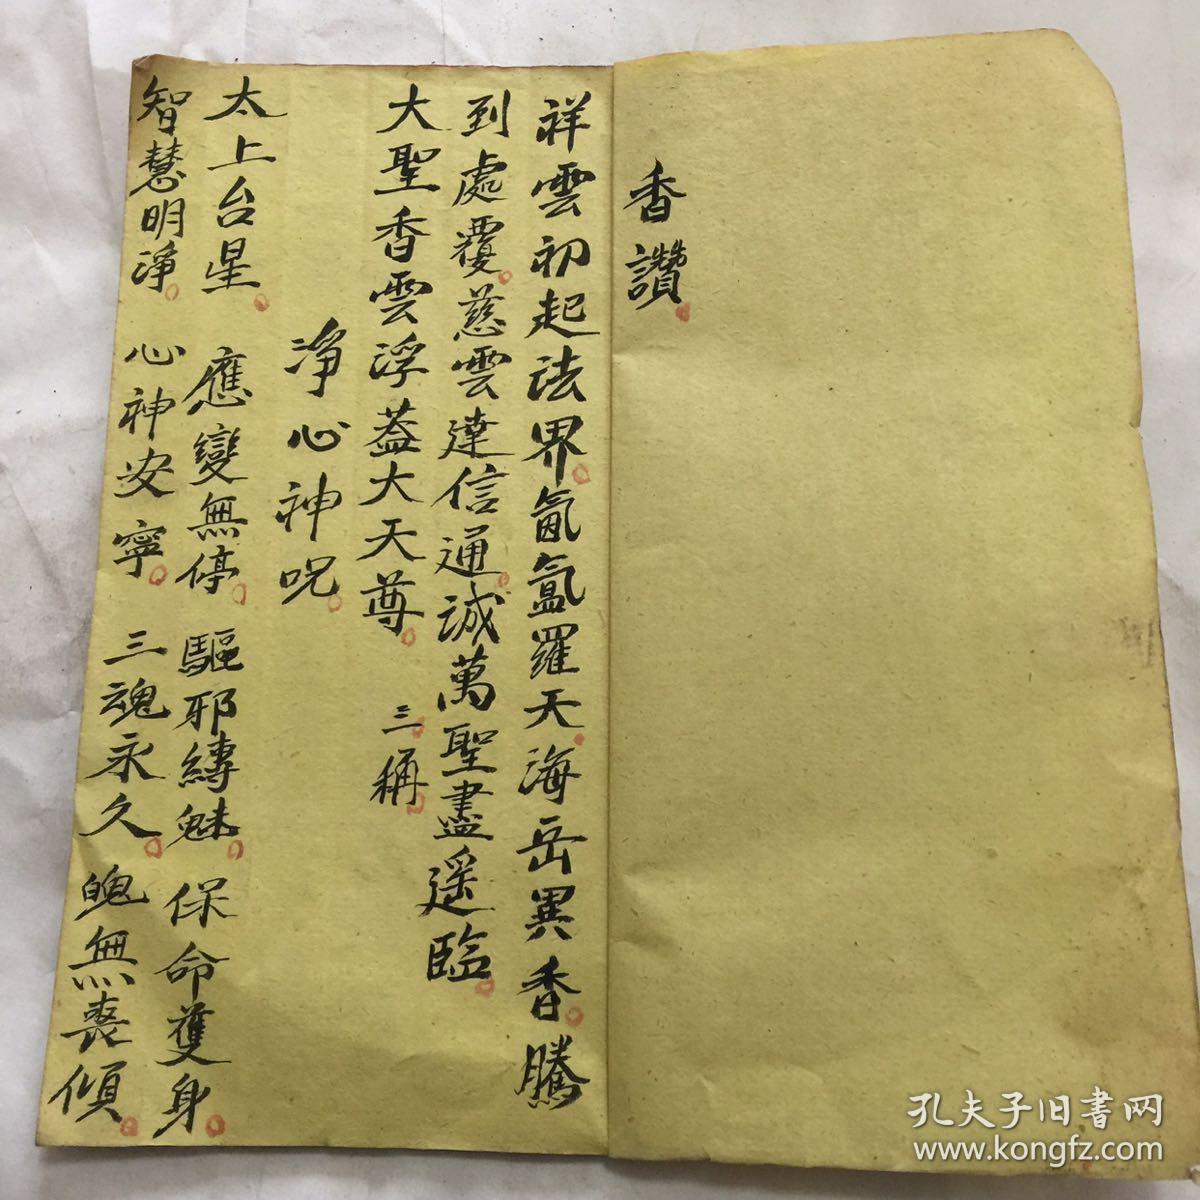 香讚。
祥雲初起法界。氤氳羅天。海岳異香。騰
到處覆。慈雲達信通。誠萬聖盡遥臨。
大聖香雲浮蓋大天尊。三稱。
淨心神呪。
太上台星。應變無停。驅邪縛魅。保命護身。
智慧明淨。心神安寧。三魂永久。魄無喪傾。
孔夫子旧书网
www.kongfz.com